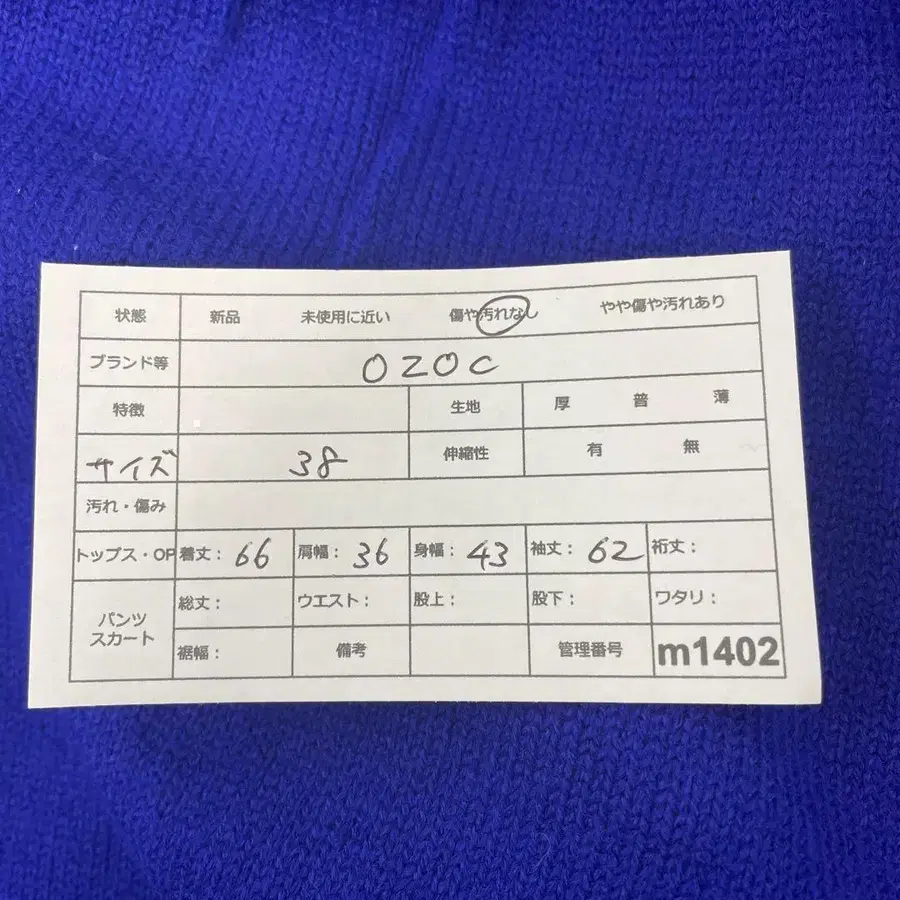 状態 新品 未使用に近い 傷や汚れなし やや傷や汚れあり
ブランド等 OZOC
特徴 生地 厚 普 薄
サイズ 38 伸縮性 有 無
汚れ・傷み
トップス・OP 着丈: 66 肩幅: 36 身幅: 43 袖丈: 62 裄丈:
パンツ スカート 総丈: ウエスト: 股上: 股下: ワタリ:
裾幅: 備考 管理番号 m1402